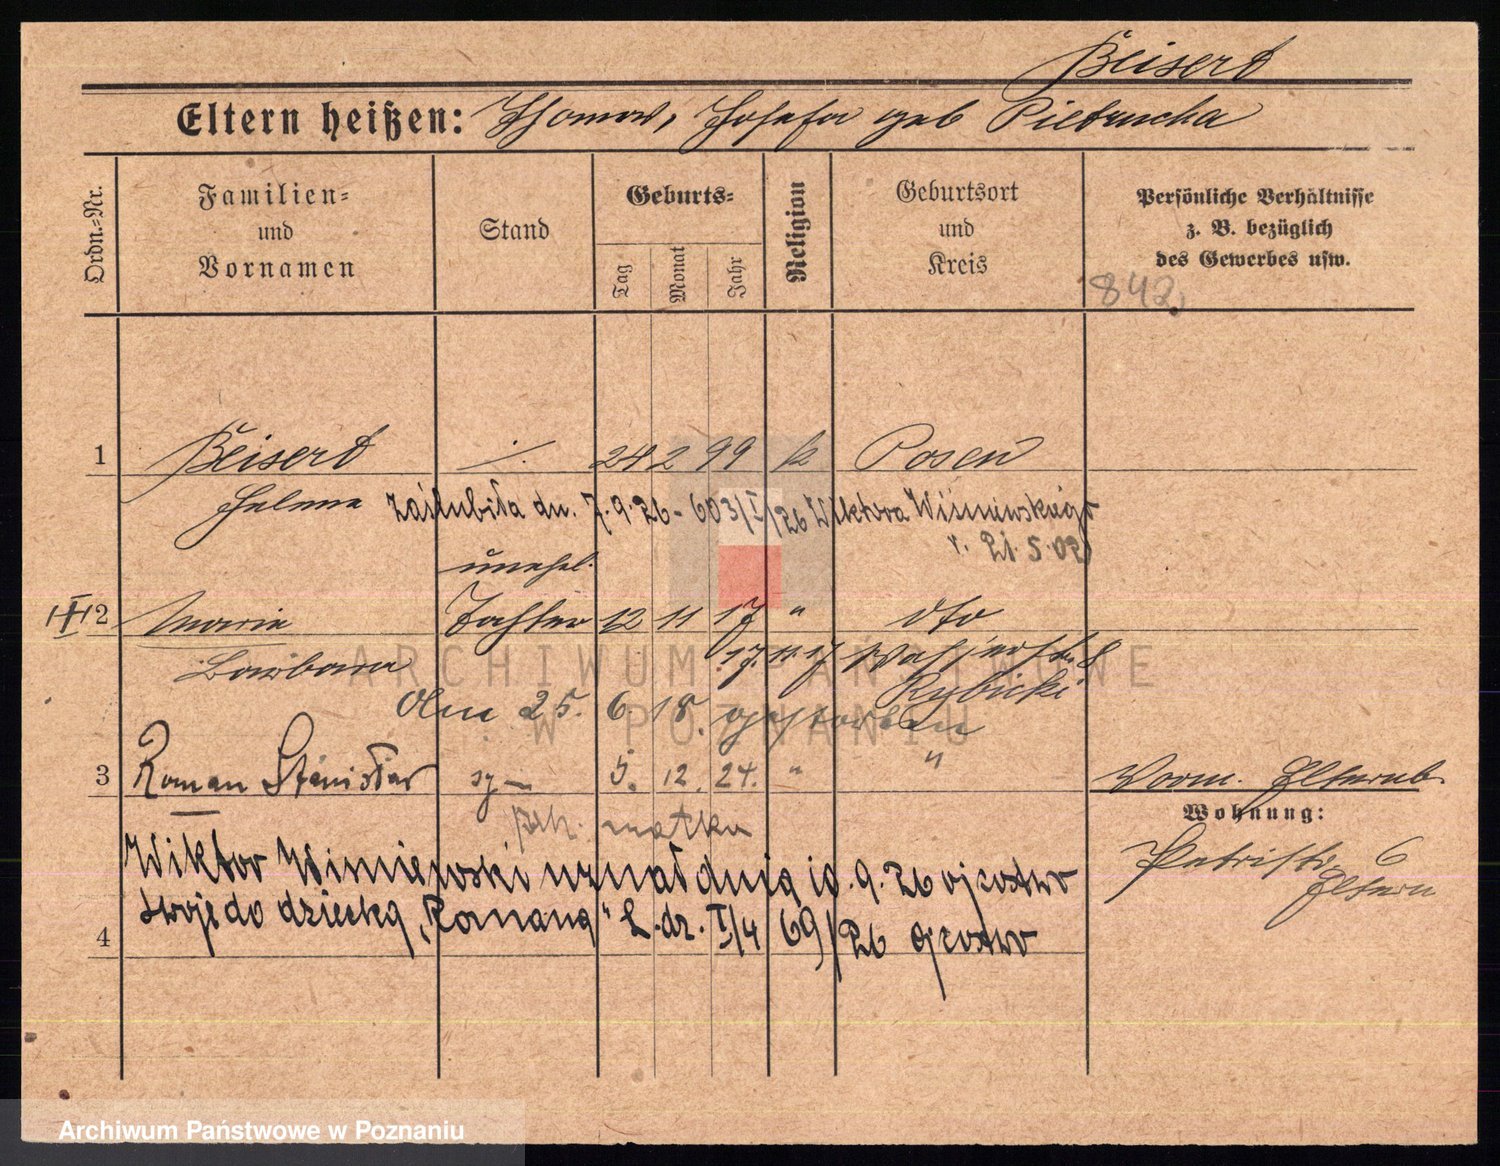 Beisert
Eltern heißen: Thomas, Josefa geb Pietrucha
Ordn.=Nr.
Familien=
und
Vornamen
Stand
Geburts=
Tag
Monat
Jahr
Religion
Geburtsort
und
Kreis
Persönliche Verhältnisse
z. B. bezüglich
des Gewerbes usw.
842
1 Beisert ./. 24 2 99 k Posen
Helene zaślubiła dn. 7.9.26 - 603/I/26 Wiktora Wiśniewskiego
r. 21.5.02
unehel.
2 Maria Tochter 12 11 17 " dto
Barbara 17.11.17 8
Rybicki
Am 25. 6. 18. gestorben
3 Roman Stanisław sy— 5. 12. 24. " "
Vorm. Elternb.
matka
Wohnung:
Wiktor Wiśniewski uznał dnia 10.9.26 ojcostwo
6
Eltern
swoje do dziecka „Romana" L.dz. I/4 69/26 ojcostwo
4
ARCHIWUM PAŃSTWOWE
W POZNANIU
Archiwum Państwowe w Poznaniu